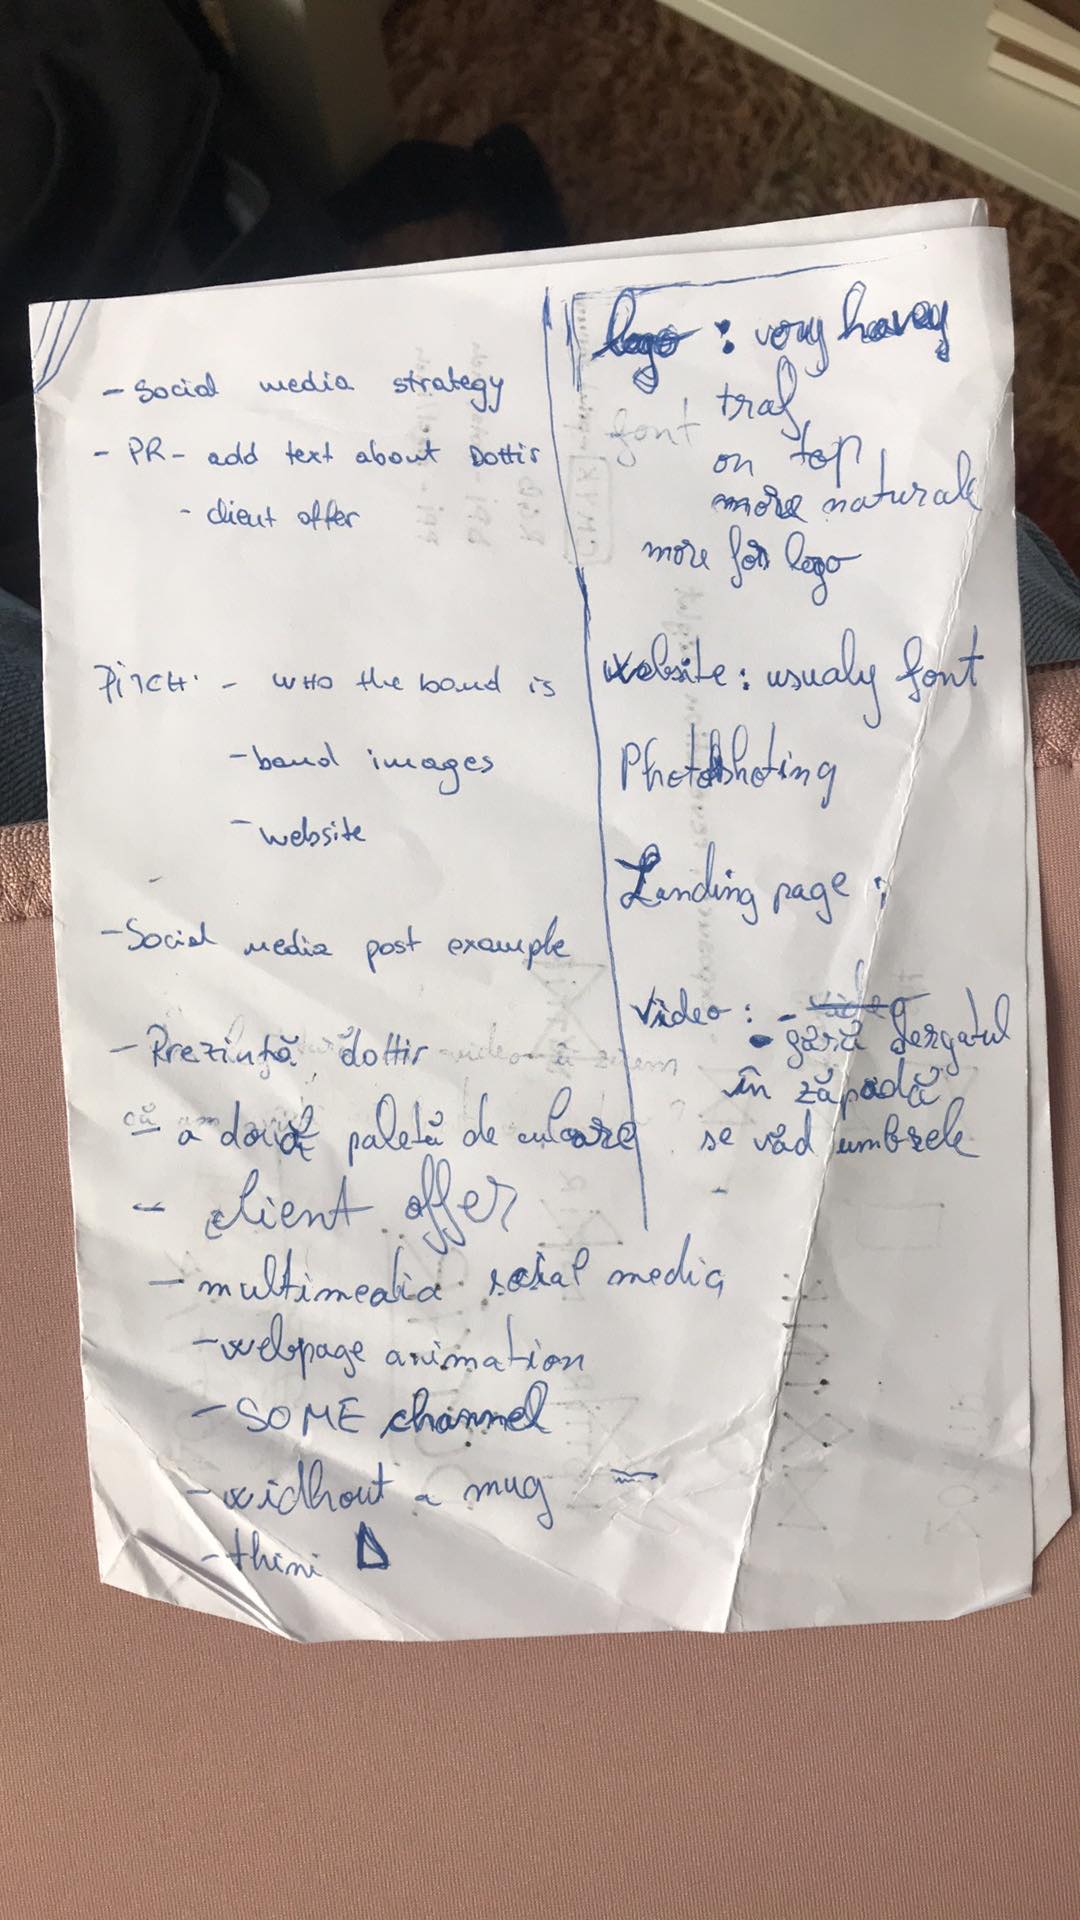 - Social media strategy
- PR - add text about Dottir
- client offer
PITCH: - WHO the band is
- band images
- website
- Social media post example
- Prezintă dottir
- a două paletă de culoare
- client offer
- multimedia social media
- webpage animation
- SOME channel
- widhout a mug
- thini
logo : very havey
font
on top
more naturale
more for logo
website : usualy font
Photoshoting
Landing page :
video : - video
în zăpadă
se văd umbrele